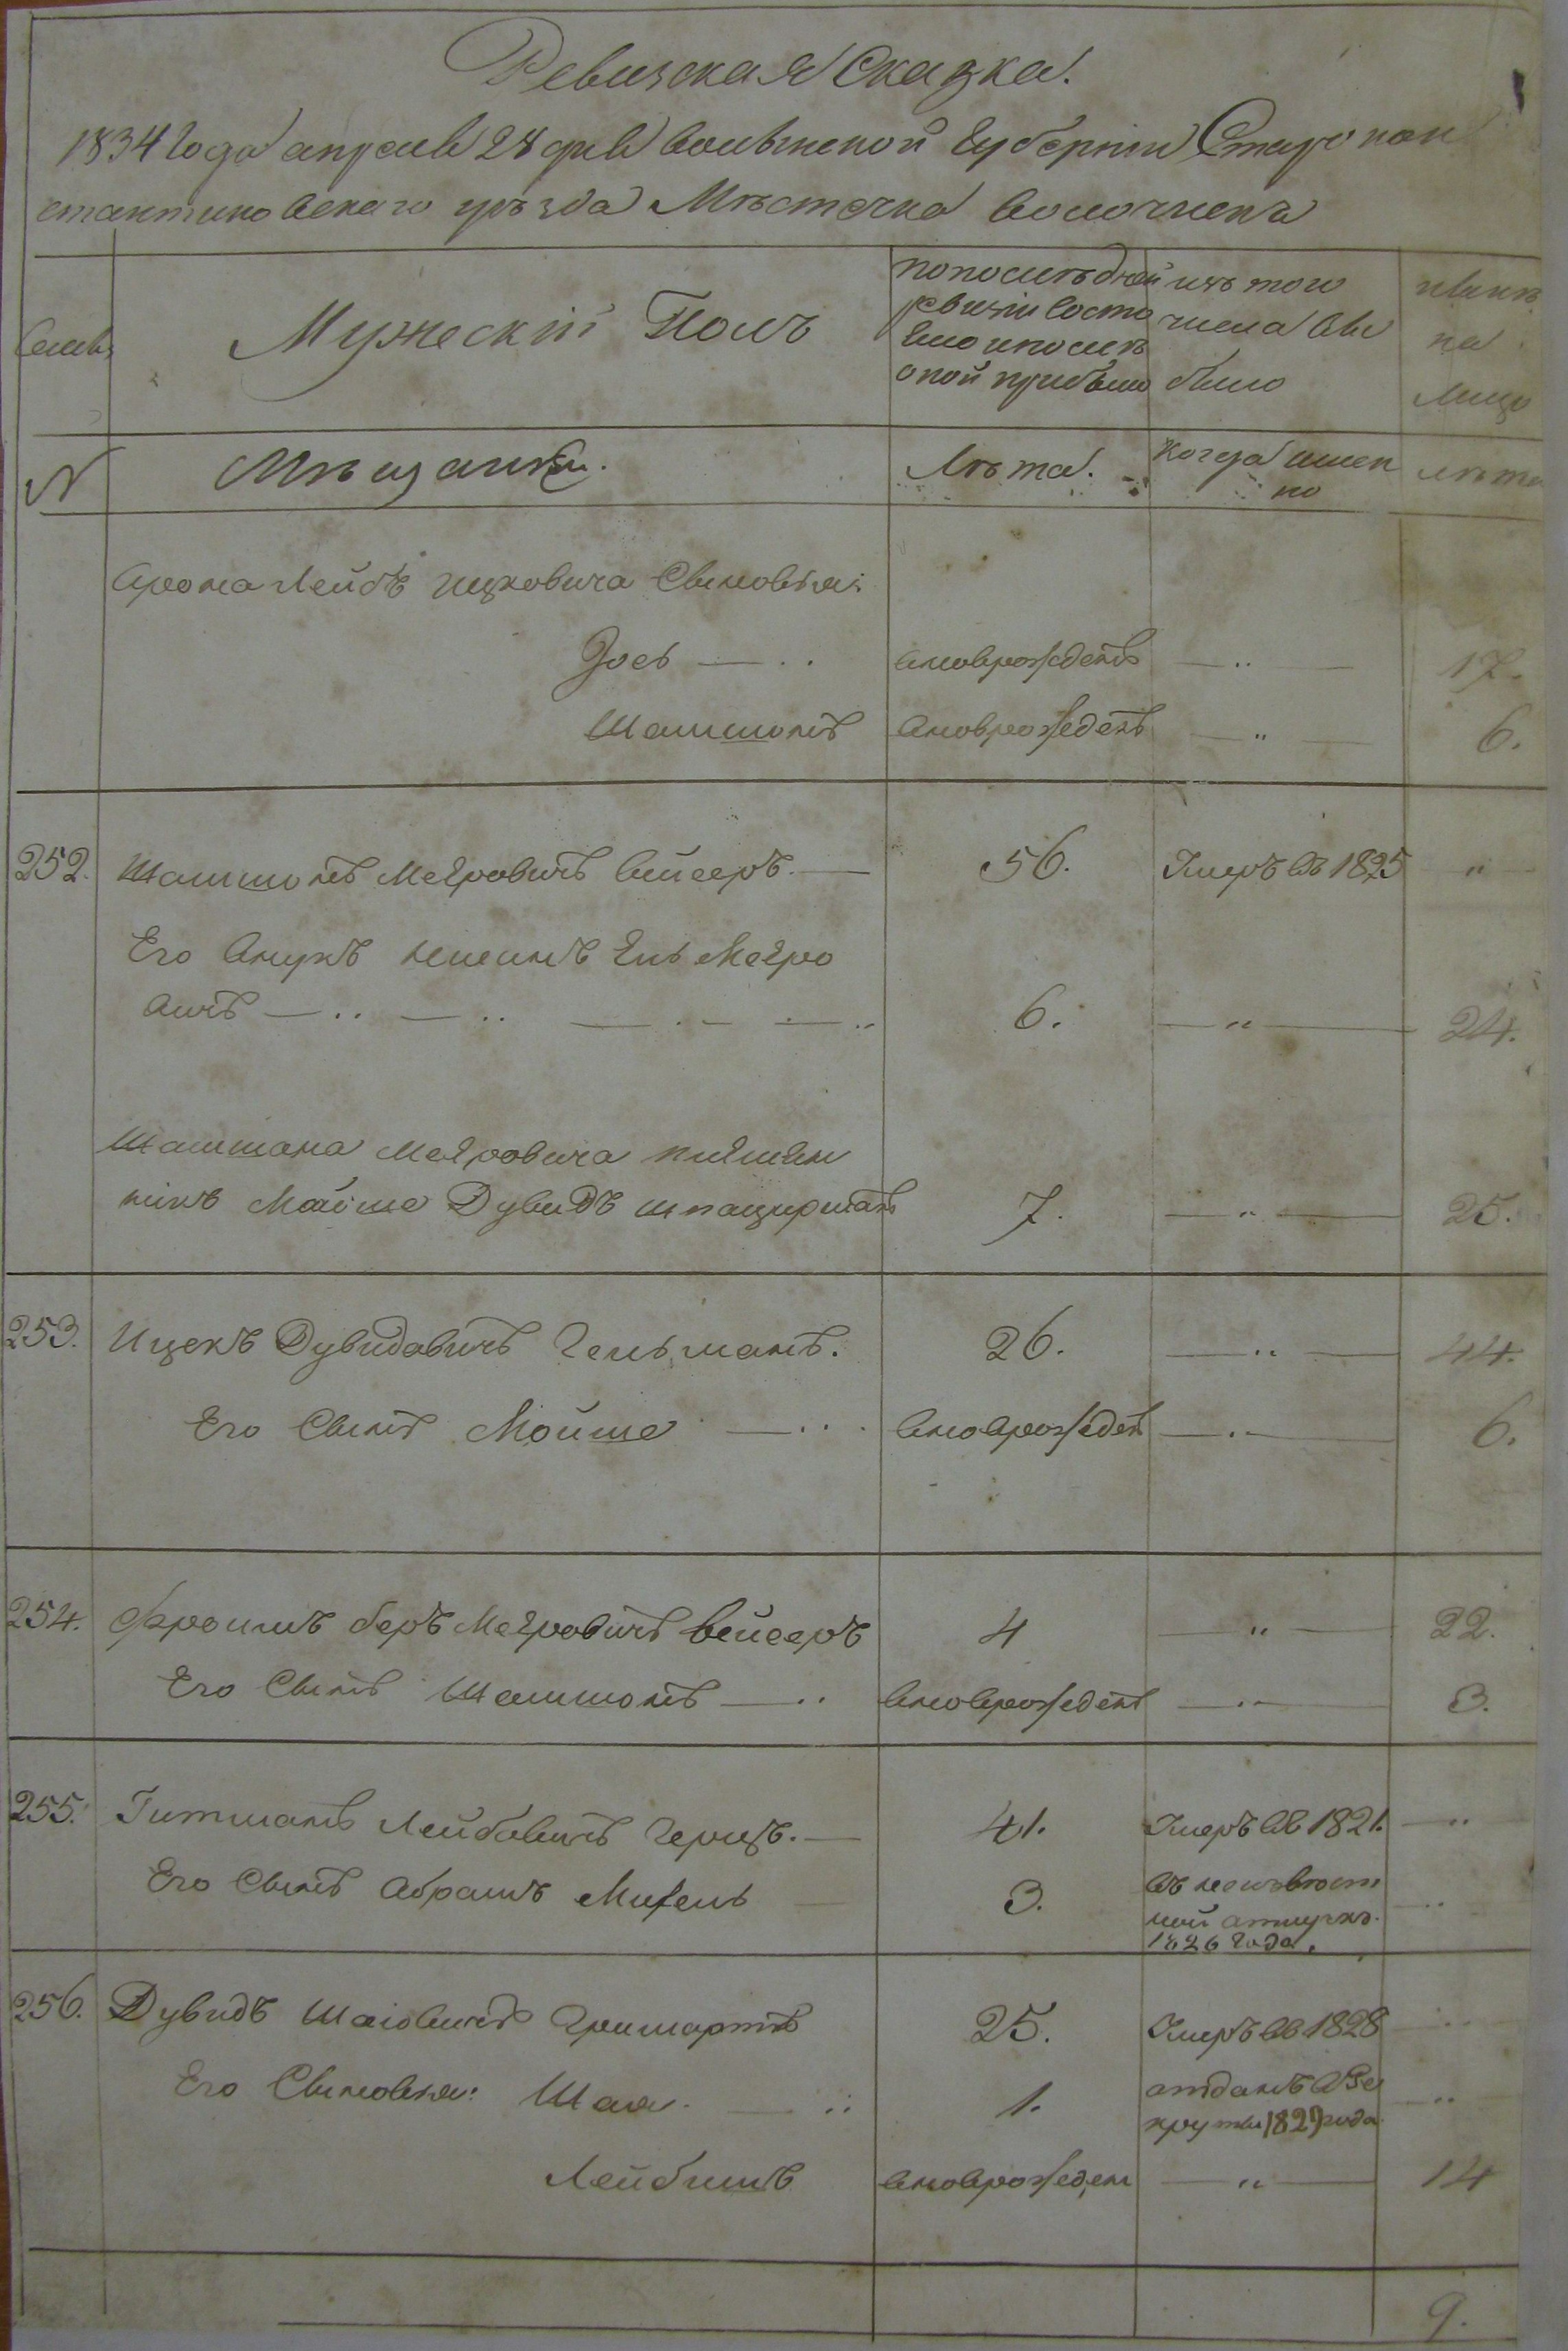 Ревизская Сказка.
1834 Года апреля 28 дня Волынской Губернiи Старокон
стантиновскаго уѣзда Мѣстечка Волочиска
Семьи
Мужескiй Полъ
по последней
ревизiи состо
яло и послѣ
оной прибыло
изъ того
числа вы
было
нынѣ
на
лицо
N
Мѣщанѣ.
Лѣта.
Когда имен
но
лѣта
Арона Лейбъ Ицковича Сыновья:
Зось — ..
вновврожденъ — .. —
17.
Шамшонъ
вновврожденъ — " —
6.
252. Шамшонъ Меяровичъ Вейсеръ. —
56.
Умеръ въ 1825
"
Его Внукъ Нисинъ Меяро
вичъ — .. — .. — . — — ..
6.
— " —
24.
Шамшона Меяровича племян
никъ Мойше Дувидъ шпациръманъ
7.
— " —
25.
253. Ицекъ Дувидовичъ Гельманъ.
26.
— .. —
44.
Его Сынъ Мойше — ...
вновврожден
— .. —
6.
254. Фроимъ беръ Меяровичъ Вейсеръ
4
— " —
22.
Его Сынъ Шамшонъ — ..
вновврожденъ
— .. —
3.
255. Гитманъ Лейбовичъ Герцъ. —
41.
Умеръ въ 1821.
— ..
Его Сынъ Абрамъ Михель —
3.
въ неизвѣст
ной атлучкѣ.
1826 Года.
..
256. Дувидъ Шаiовичъ
25.
Умеръ въ 1828
— ..
Его Сыновья: Шая. — ..
1.
атданъ в Ре
круты 1829 года.
— ..
Лейбишъ
вновврожден
— " —
14
9.